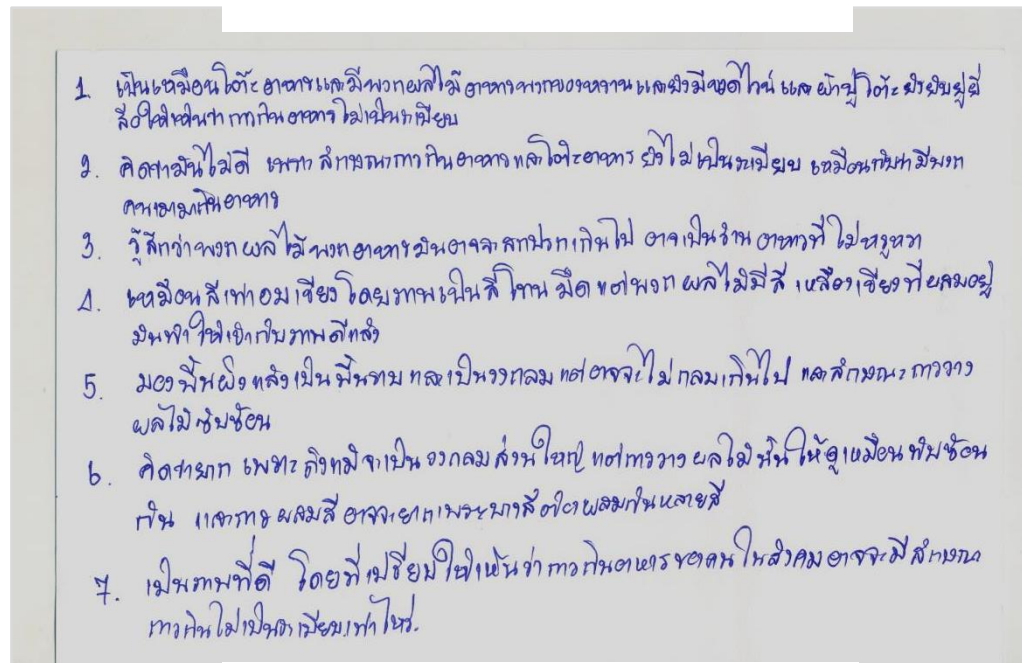 1. เป็นเหมือนโต๊ะอาหารและมีพวกผลไม้อาหารพวกของหวานและยังมีขวดไวน์ และผ้าปูโต๊ะยังยับยู่ยี่
สื่อให้เห็นว่าการกินอาหารไม่เป็นระเบียบ
2. คิดว่ามันไม่ดี เพราะลักษณะการกินอาหารและโต๊ะอาหารยังไม่เป็นระเบียบ เหมือนกับว่ามีพวก
คนเมามากินอาหาร
3. รู้สึกว่าพวกผลไม้พวกอาหารมันอาจจะสกปรกเกินไป อาจเป็นร้านอาหารที่ไม่หรูหรา
4. เหมือนสีเทาอมเขียวโดยภาพเป็นสีโทนมืดแต่พวกผลไม้มีสีเหลืองเขียวที่ผสมอยู่
มันทำให้เข้ากับภาพดีแล้ว
5. มองพื้นผิวแล้วเป็นพื้นราบและเป็นวงกลมแต่อาจจะไม่กลมเกินไป และลักษณะการวาง
ผลไม้ซับซ้อน
6. คิดว่ายาก เพราะถึงแม้จะเป็นวงกลมส่วนใหญ่แต่การวางผลไม้นั้นให้ดูเหมือนทับซ้อน
กัน และการผสมสีอาจจะยากเพราะบางสีต้องผสมกันหลายสี
7. เป็นภาพที่ดี โดยที่เปรียบให้เห็นว่าการกินอาหารของคนในสังคมอาจจะมีลักษณะ
การกินไม่เป็นระเบียบเท่าไหร่.